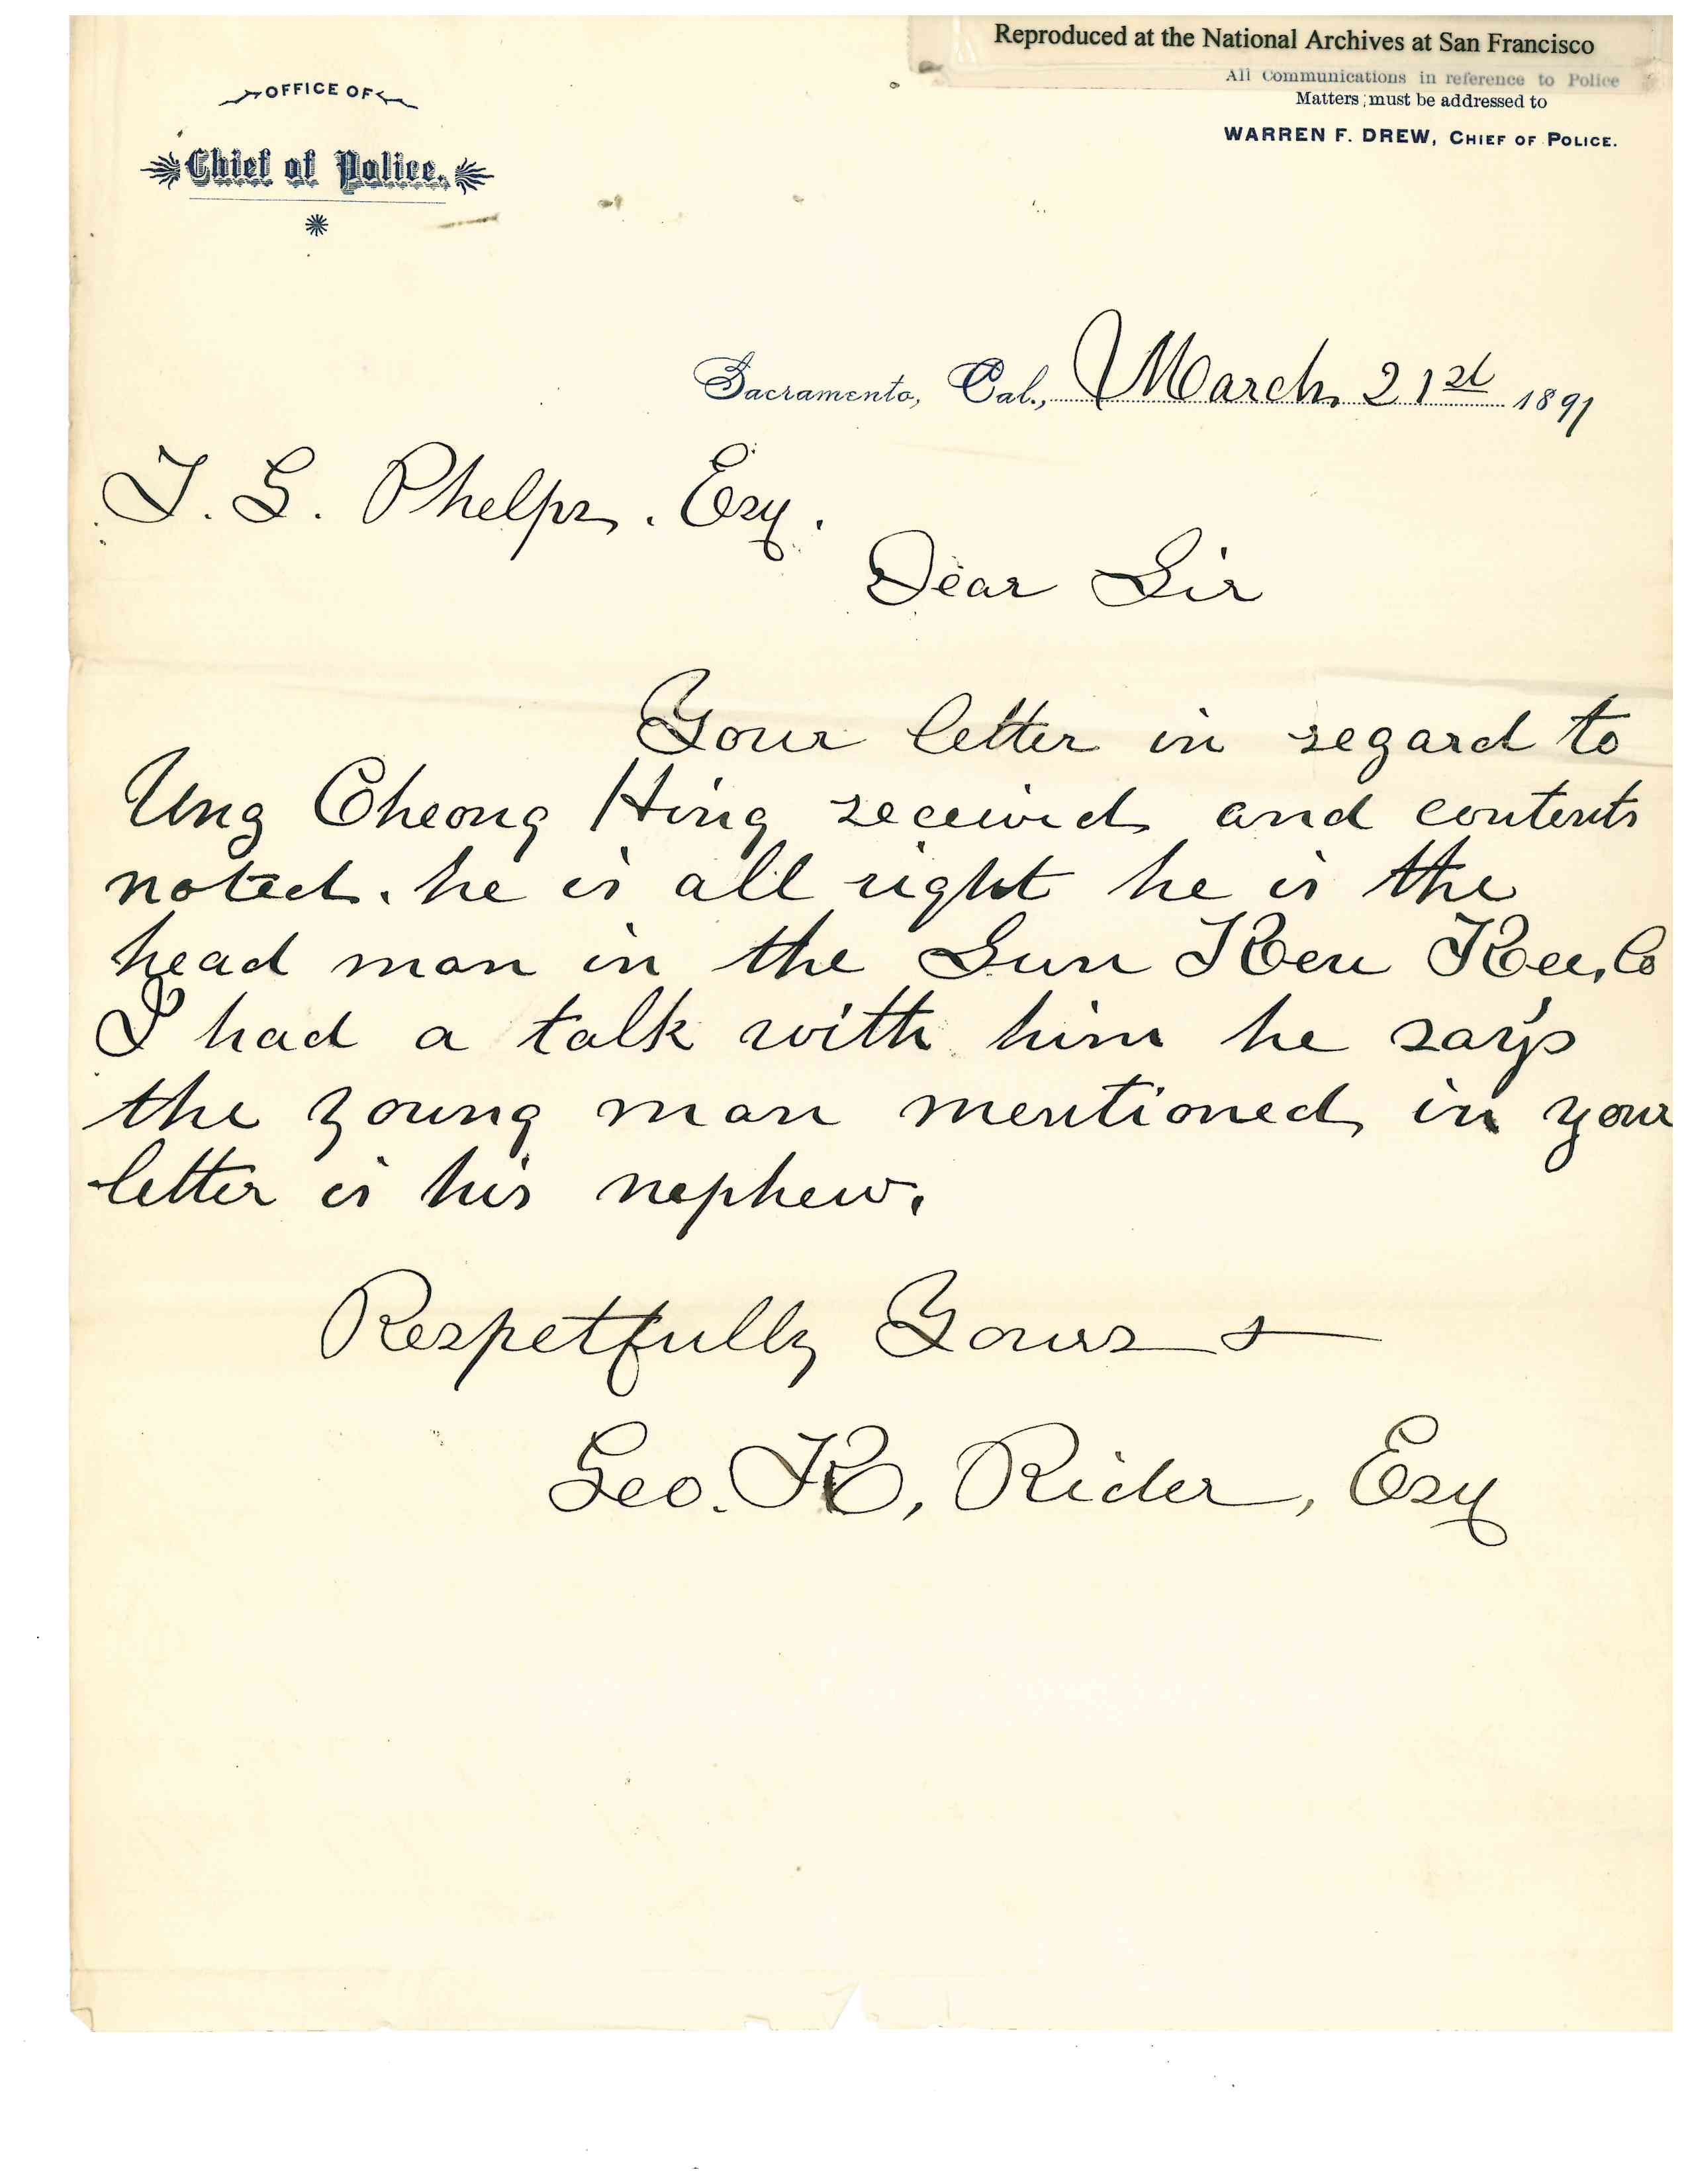 Reproduced at the National Archives at San Francisco
OFFICE OF
Chief of Police.
All Communications in reference to Police
Matters must be addressed to
WARREN F. DREW, CHIEF OF POLICE.
Sacramento, Cal., March 21st 1891
T. G. Phelps. Esq.
Dear Sir
Your letter in regard to
Ung Cheong Hing received and contents
noted. he is all right he is the
head man in the Sun Ken Kee, Co
I had a talk with him he says
the young man mentioned in your
letter is his nephew.
Respetfully Yours
Geo. K, Rider, Esq